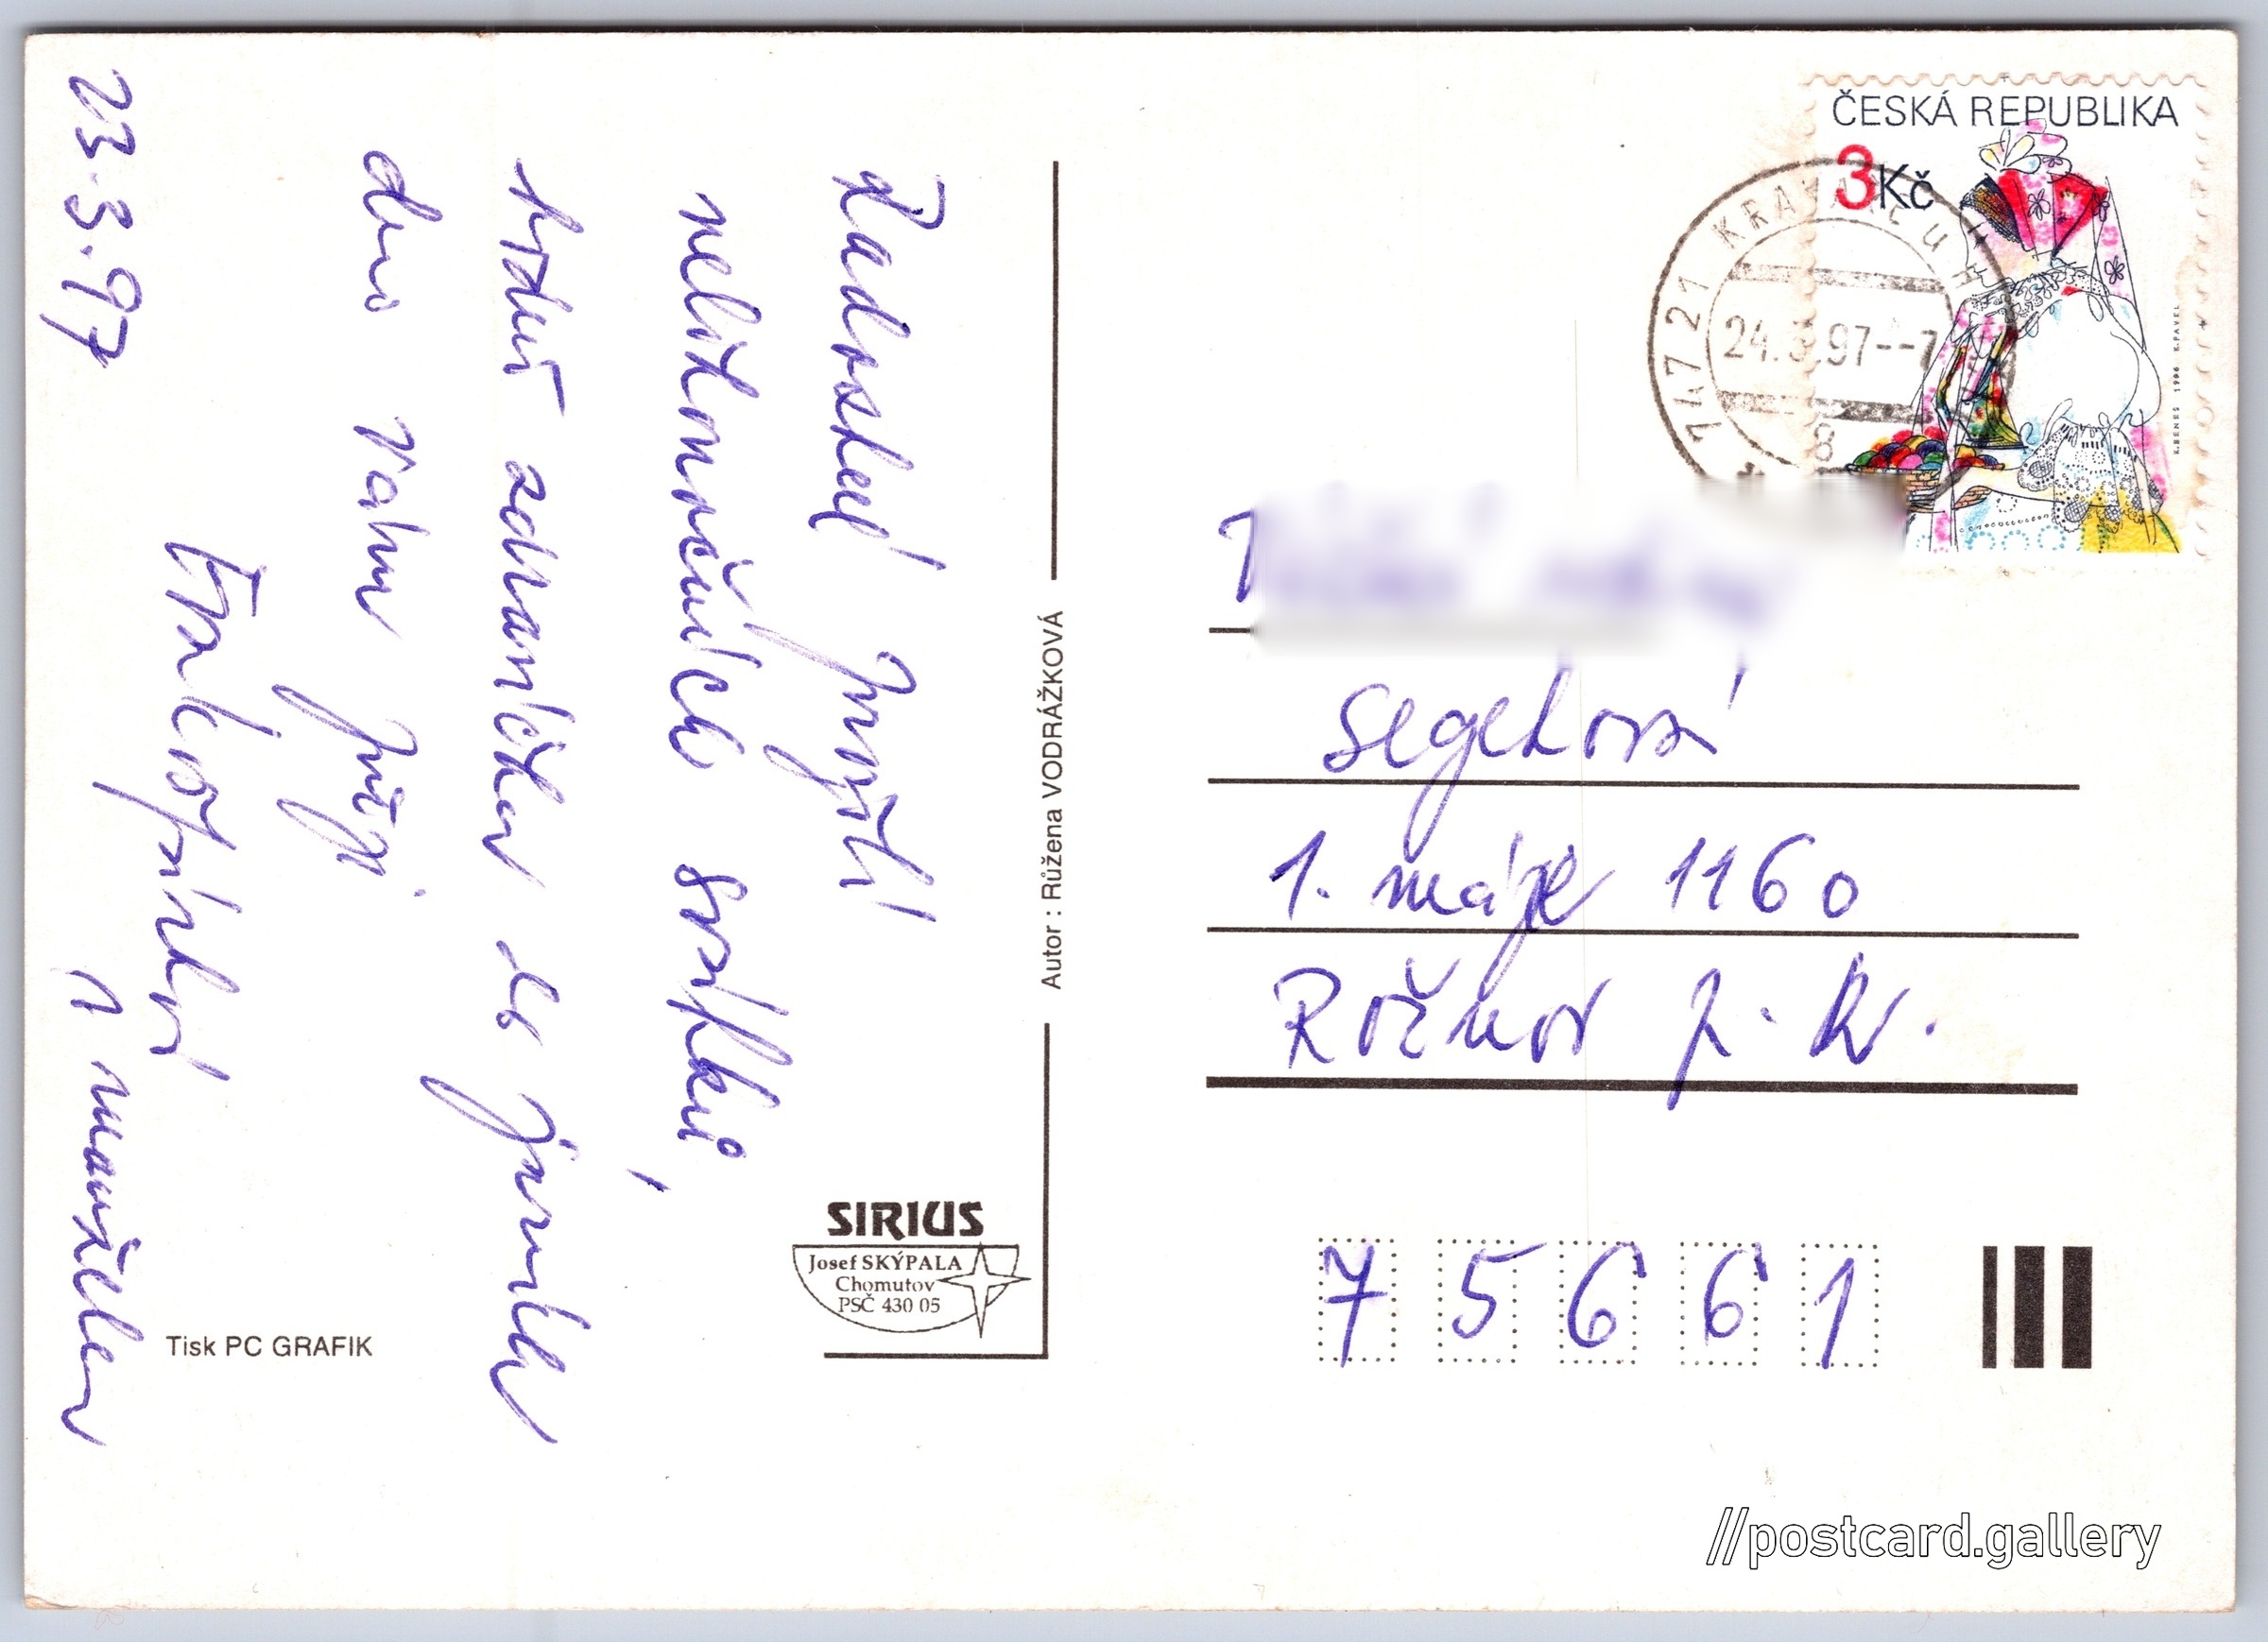 Radostné prožití
velikonočních svátků,
hodně zdravíčka do
dne Vám přeje
s manželem
23.3.97
Autor : Růžena VODRÁŽKOVÁ
SIRIUS
Josef SKÝPALA
Chomutov
PSČ 430 05
Tisk PC GRAFIK
ČESKÁ REPUBLIKA
3Kč
K.BENEŠ 1996 K.PAVEL
747 21 KRAVAŘE U H
24.3.97--7
8
Segetová
1. máje 1160
Rožnov p. R.
75661
//postcard.gallery